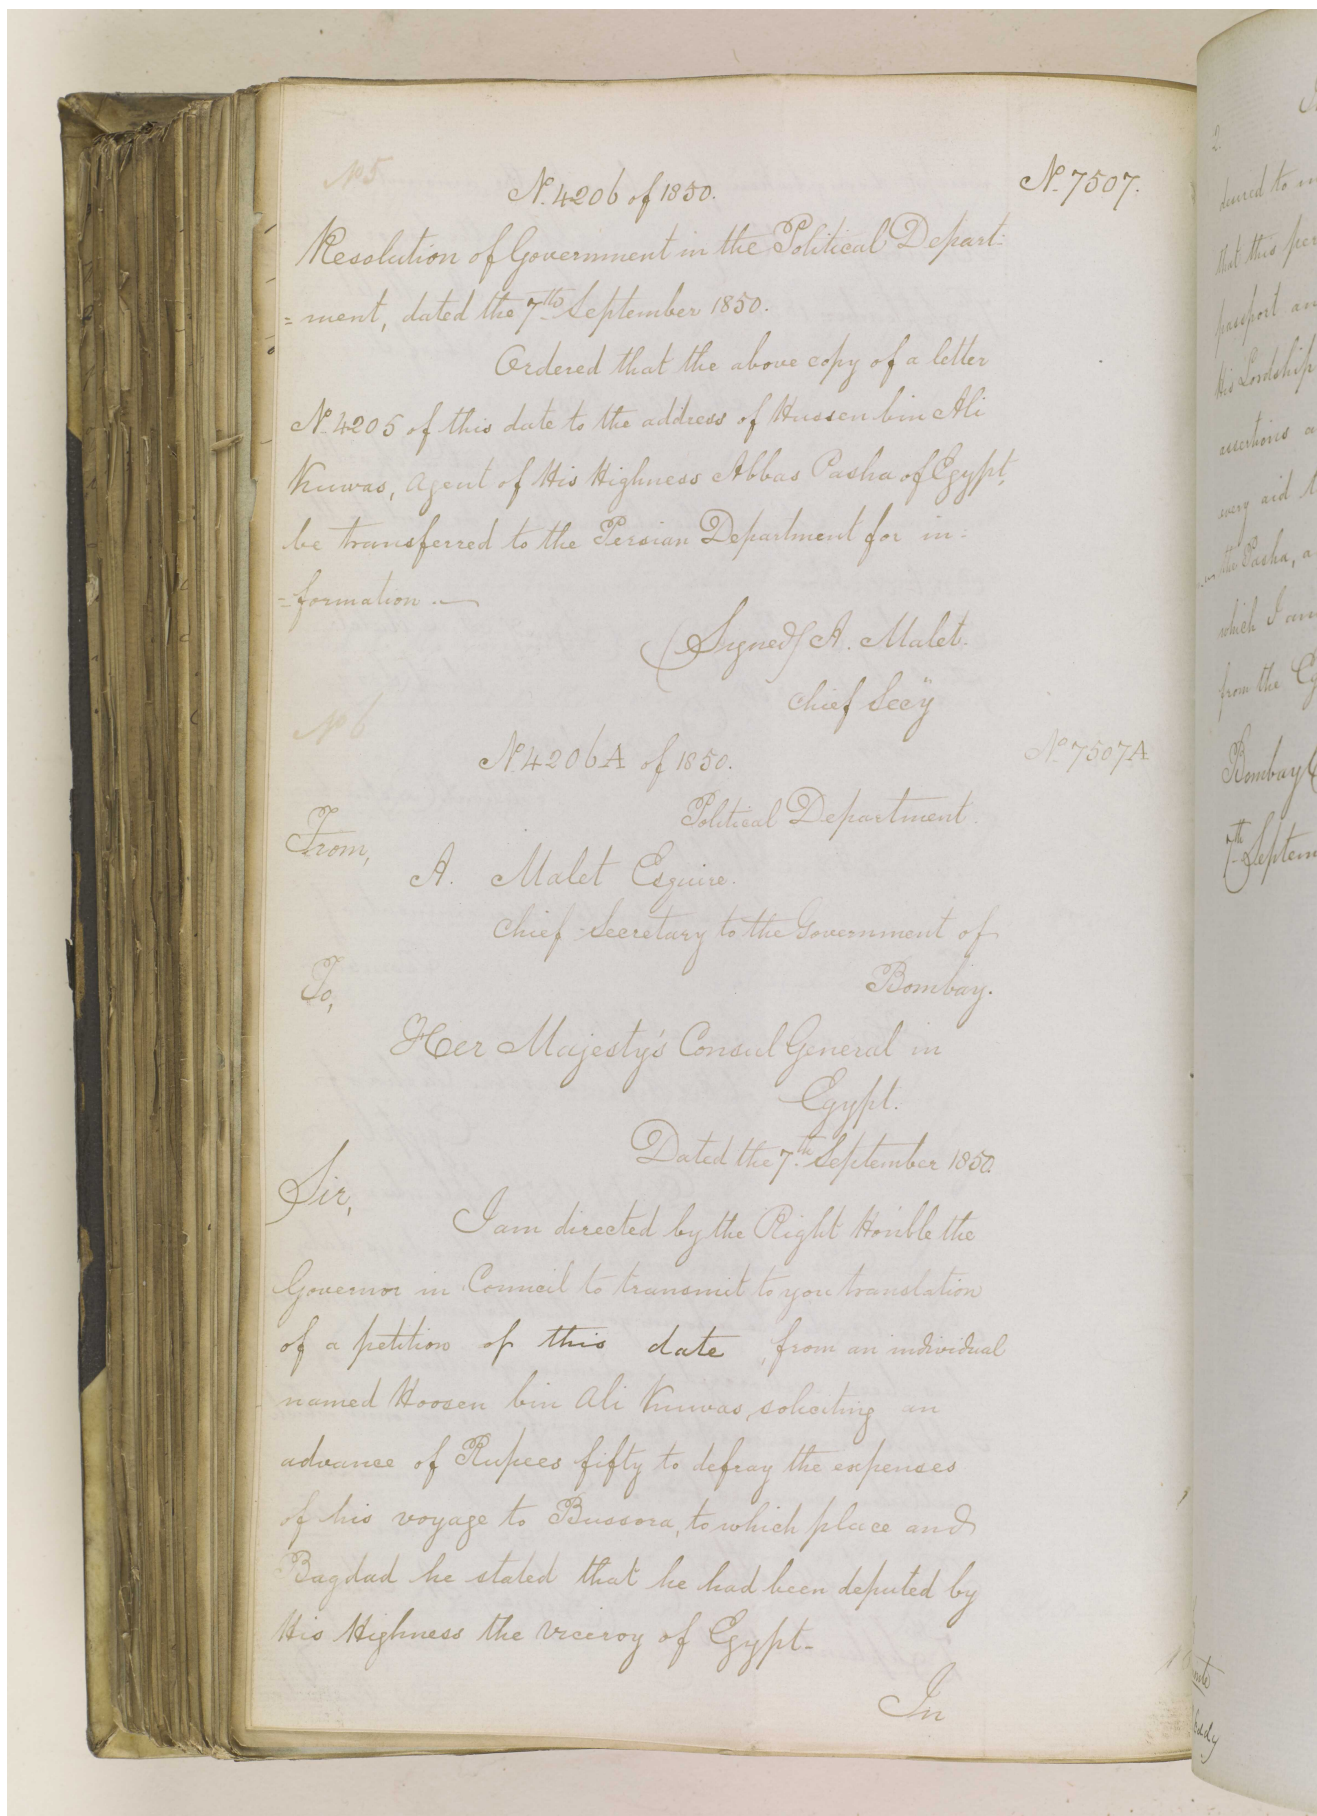 No 5
No. 4206 of 1850.
No. 7507.
Resolution of Government in the Political Depart:
= ment, dated the 7th September 1850.
Ordered that the above copy of a letter
No. 4205 of this date to the address of Hussen bin Ali
Kuwas, Agent of His Highness Abbas Pasha of Egypt,
be transferred to the Persian Department for in:
= formation. —
(Signed) A. Malet.
Chief Secy
No 6
No. 4206A of 1850.
No. 7507A
Political Department.
From,
A. Malet Esquire.
Chief Secretary to the Government of
Bombay.
To,
Her Majesty's Consul General in
Egypt.
Dated the 7th September 1850
Sir,
I am directed by the Right Honble the
Governor in Council to transmit to you translation
of a petition of this date, from an individual
named Hoosen bin Ali Kuwas, soliciting an
advance of Rupees fifty to defray the expenses
of his voyage to Bussora, to which place and
Bagdad he stated that he had been deputed by
His Highness the Viceroy of Egypt-
In
2.
desired to
that this per
passport an
His Lordship
assertions a
every aid
the Pasha, a
which I am
from the
Bombay
7th Septem